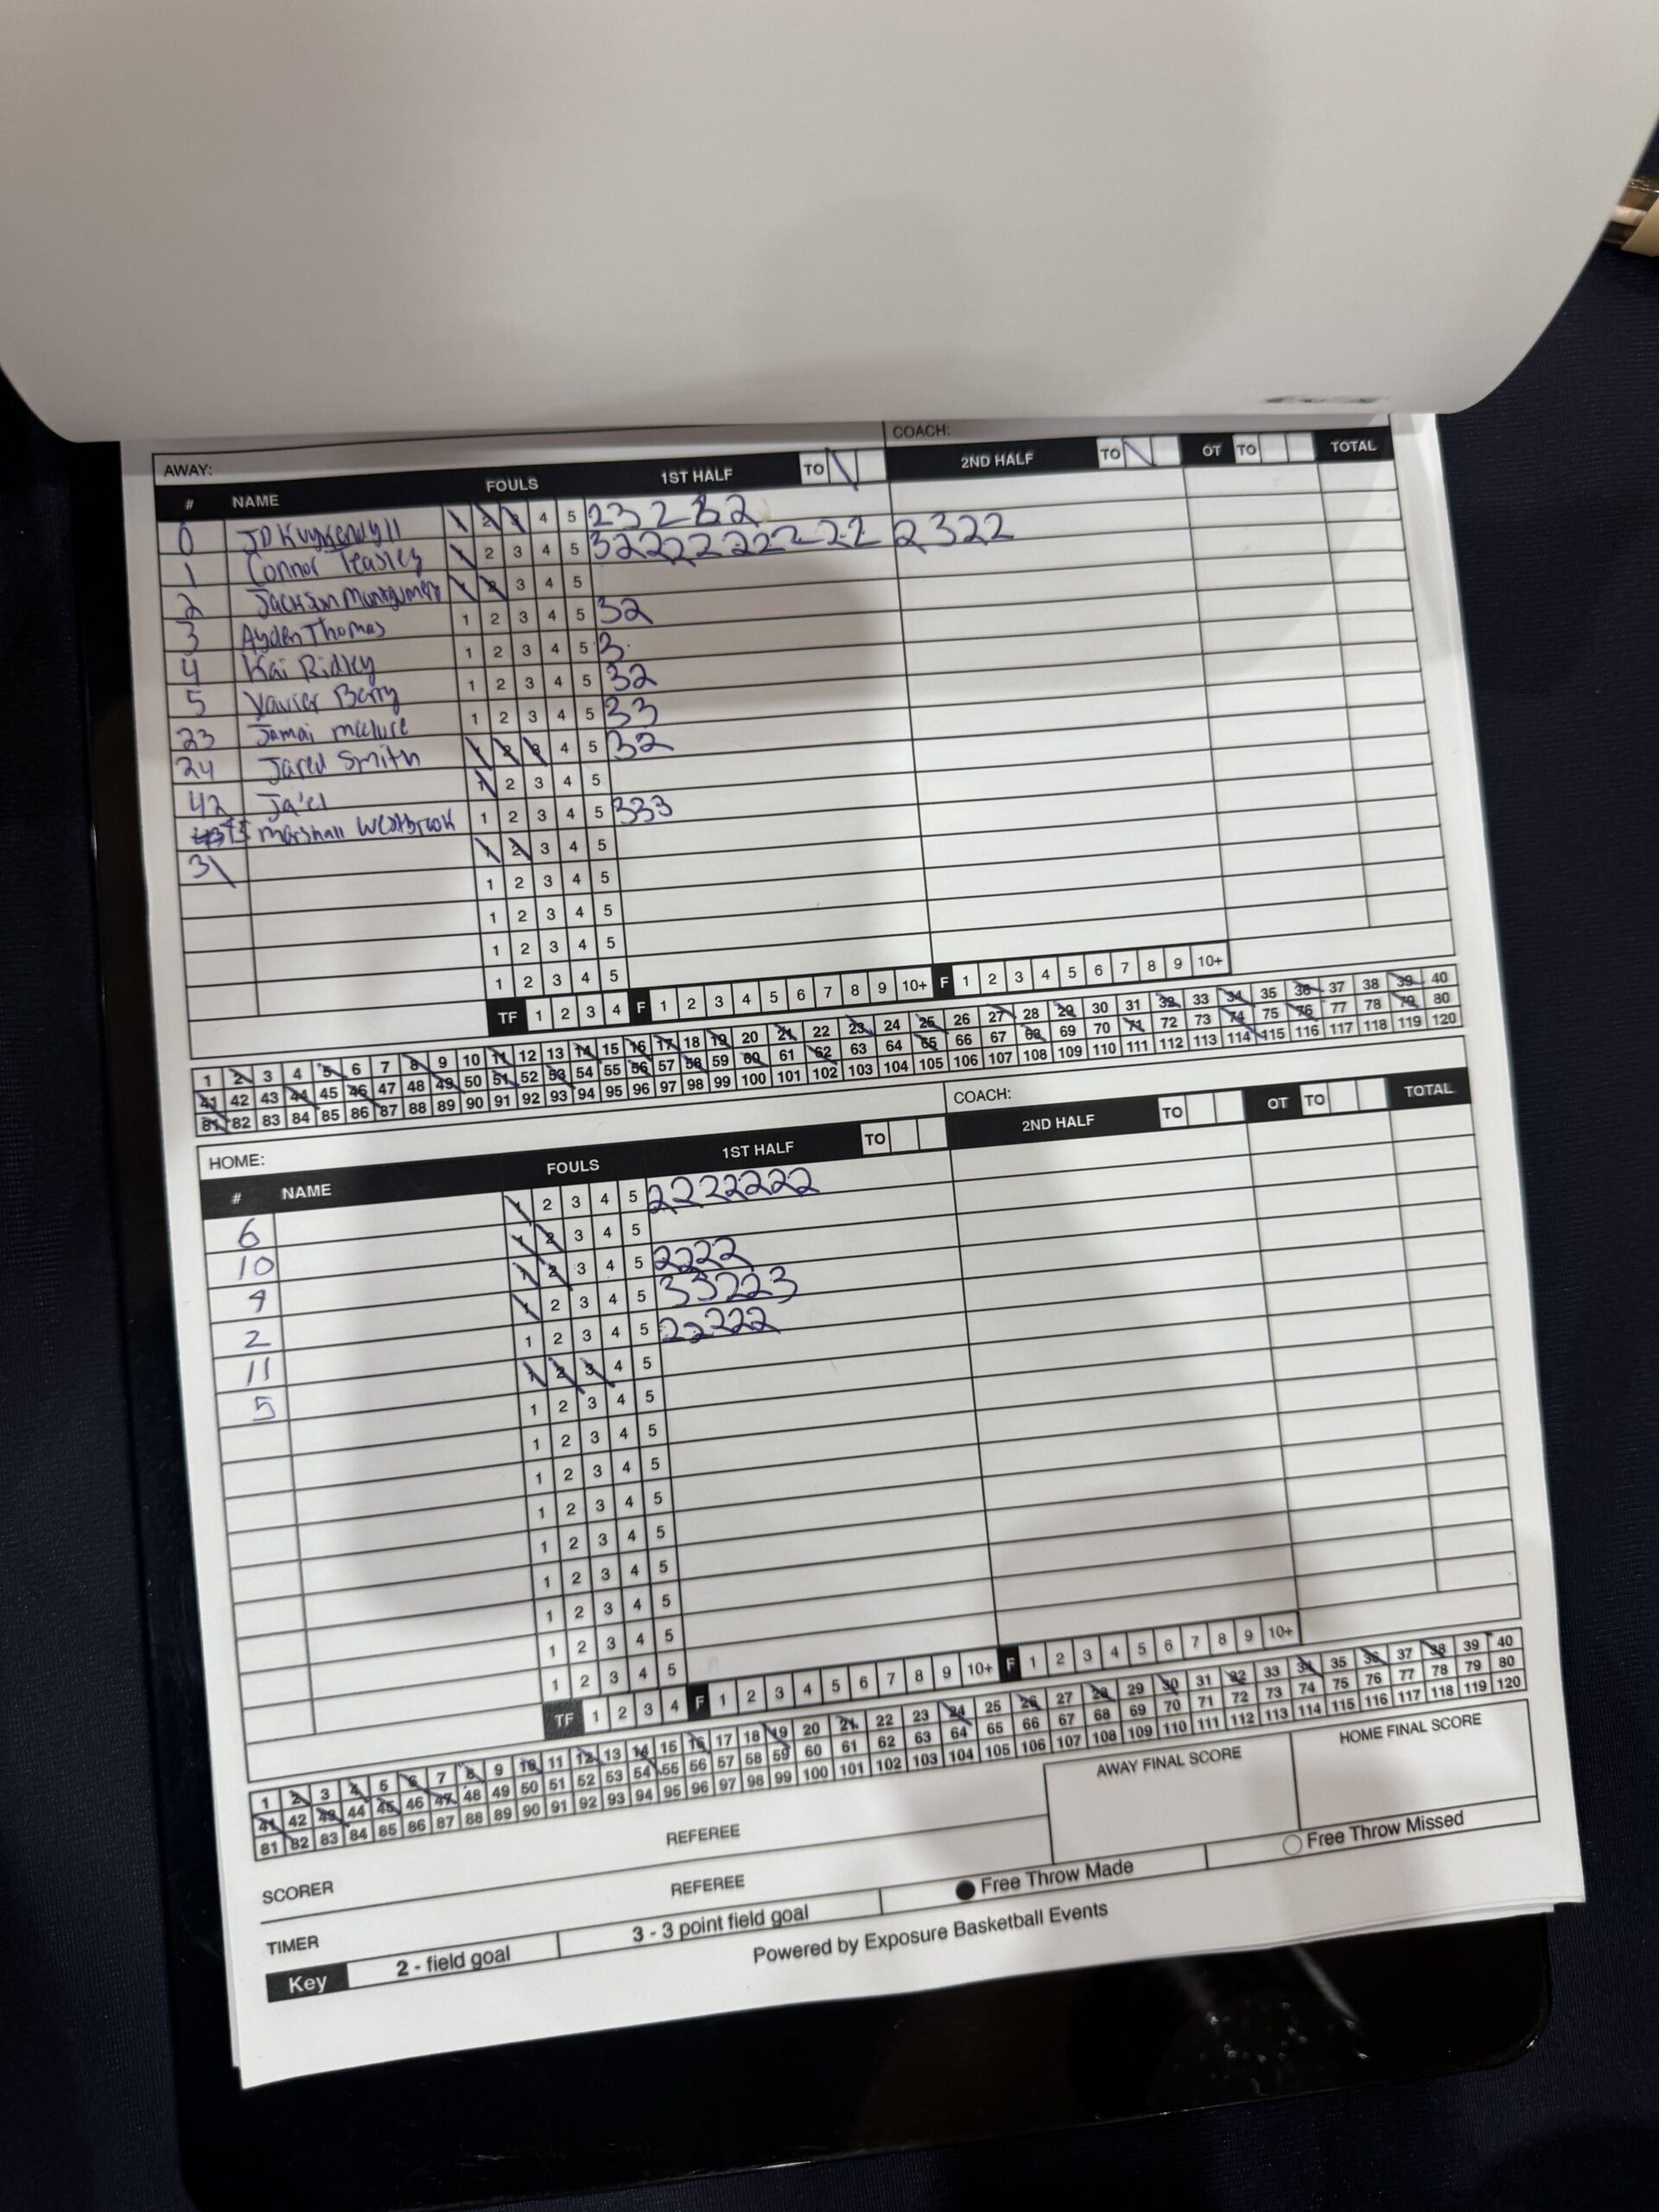 AWAY: COACH:
# NAME FOULS 1ST HALF TO 2ND HALF TO OT TO TOTAL
0 JD Kuykendyll 1 2 3 4 5 232 2
1 Connor Teasley 1 2 3 4 5 3222222222 2322
2 Jackson Montgumery 1 2 3 4 5
3 Ayden Thomas 1 2 3 4 5 32
4 Kai Ridley 1 2 3 4 5 3
5 Xavier Berry 1 2 3 4 5 32
23 Jamai mcclure 1 2 3 4 5 33
24 Jared Smith 1 2 3 4 5 32
42 Ja'el 1 2 3 4 5
Marshall Westbrook 1 2 3 4 5 333
31 1 2 3 4 5
1 2 3 4 5
1 2 3 4 5
1 2 3 4 5
1 2 3 4 5
TF 1 2 3 4 F 1 2 3 4 5 6 7 8 9 10+ F 1 2 3 4 5 6 7 8 9 10+
1 2 3 4 5 6 7 8 9 10 11 12 13 14 15 16 17 18 19 20 21 22 23 24 25 26 27 28 29 30 31 32 33 34 35 36 37 38 39 40
41 42 43 44 45 46 47 48 49 50 51 52 53 54 55 56 57 58 59 60 61 62 63 64 65 66 67 68 69 70 71 72 73 74 75 76 77 78 79 80
81 82 83 84 85 86 87 88 89 90 91 92 93 94 95 96 97 98 99 100 101 102 103 104 105 106 107 108 109 110 111 112 113 114 115 116 117 118 119 120
HOME: COACH:
# NAME FOULS 1ST HALF TO 2ND HALF TO OT TO TOTAL
6 1 2 3 4 5 2222222
10 1 2 3 4 5
9 1 2 3 4 5 2222
2 1 2 3 4 5 33223
11 1 2 3 4 5 22222
5 1 2 3 4 5
1 2 3 4 5
1 2 3 4 5
1 2 3 4 5
1 2 3 4 5
1 2 3 4 5
1 2 3 4 5
1 2 3 4 5
1 2 3 4 5
1 2 3 4 5
TF 1 2 3 4 F 1 2 3 4 5 6 7 8 9 10+ F 1 2 3 4 5 6 7 8 9 10+
1 2 3 4 5 6 7 8 9 10 11 12 13 14 15 16 17 18 19 20 21 22 23 24 25 26 27 28 29 30 31 32 33 34 35 36 37 38 39 40
41 42 43 44 45 46 47 48 49 50 51 52 53 54 55 56 57 58 59 60 61 62 63 64 65 66 67 68 69 70 71 72 73 74 75 76 77 78 79 80
81 82 83 84 85 86 87 88 89 90 91 92 93 94 95 96 97 98 99 100 101 102 103 104 105 106 107 108 109 110 111 112 113 114 115 116 117 118 119 120
SCORER REFEREE AWAY FINAL SCORE HOME FINAL SCORE
TIMER REFEREE
Key 2 - field goal 3 - 3 point field goal Free Throw Made Free Throw Missed
Powered by Exposure Basketball Events